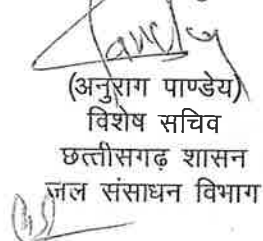 (अनुराग पाण्डेय)
विशेष सचिव
छत्तीसगढ़ शासन
जल संसाधन विभाग